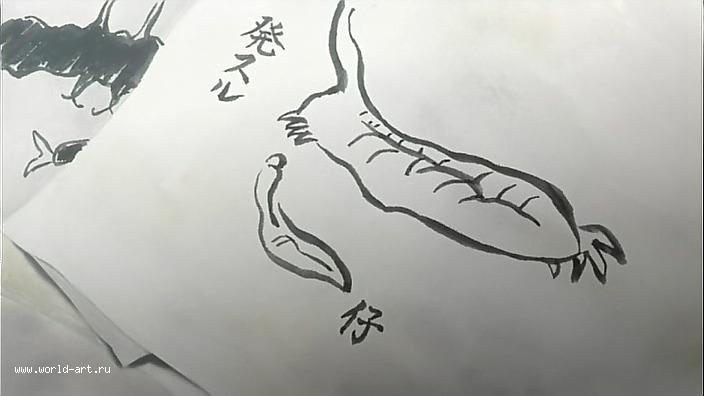 発スル
仔
www.world-art.ru